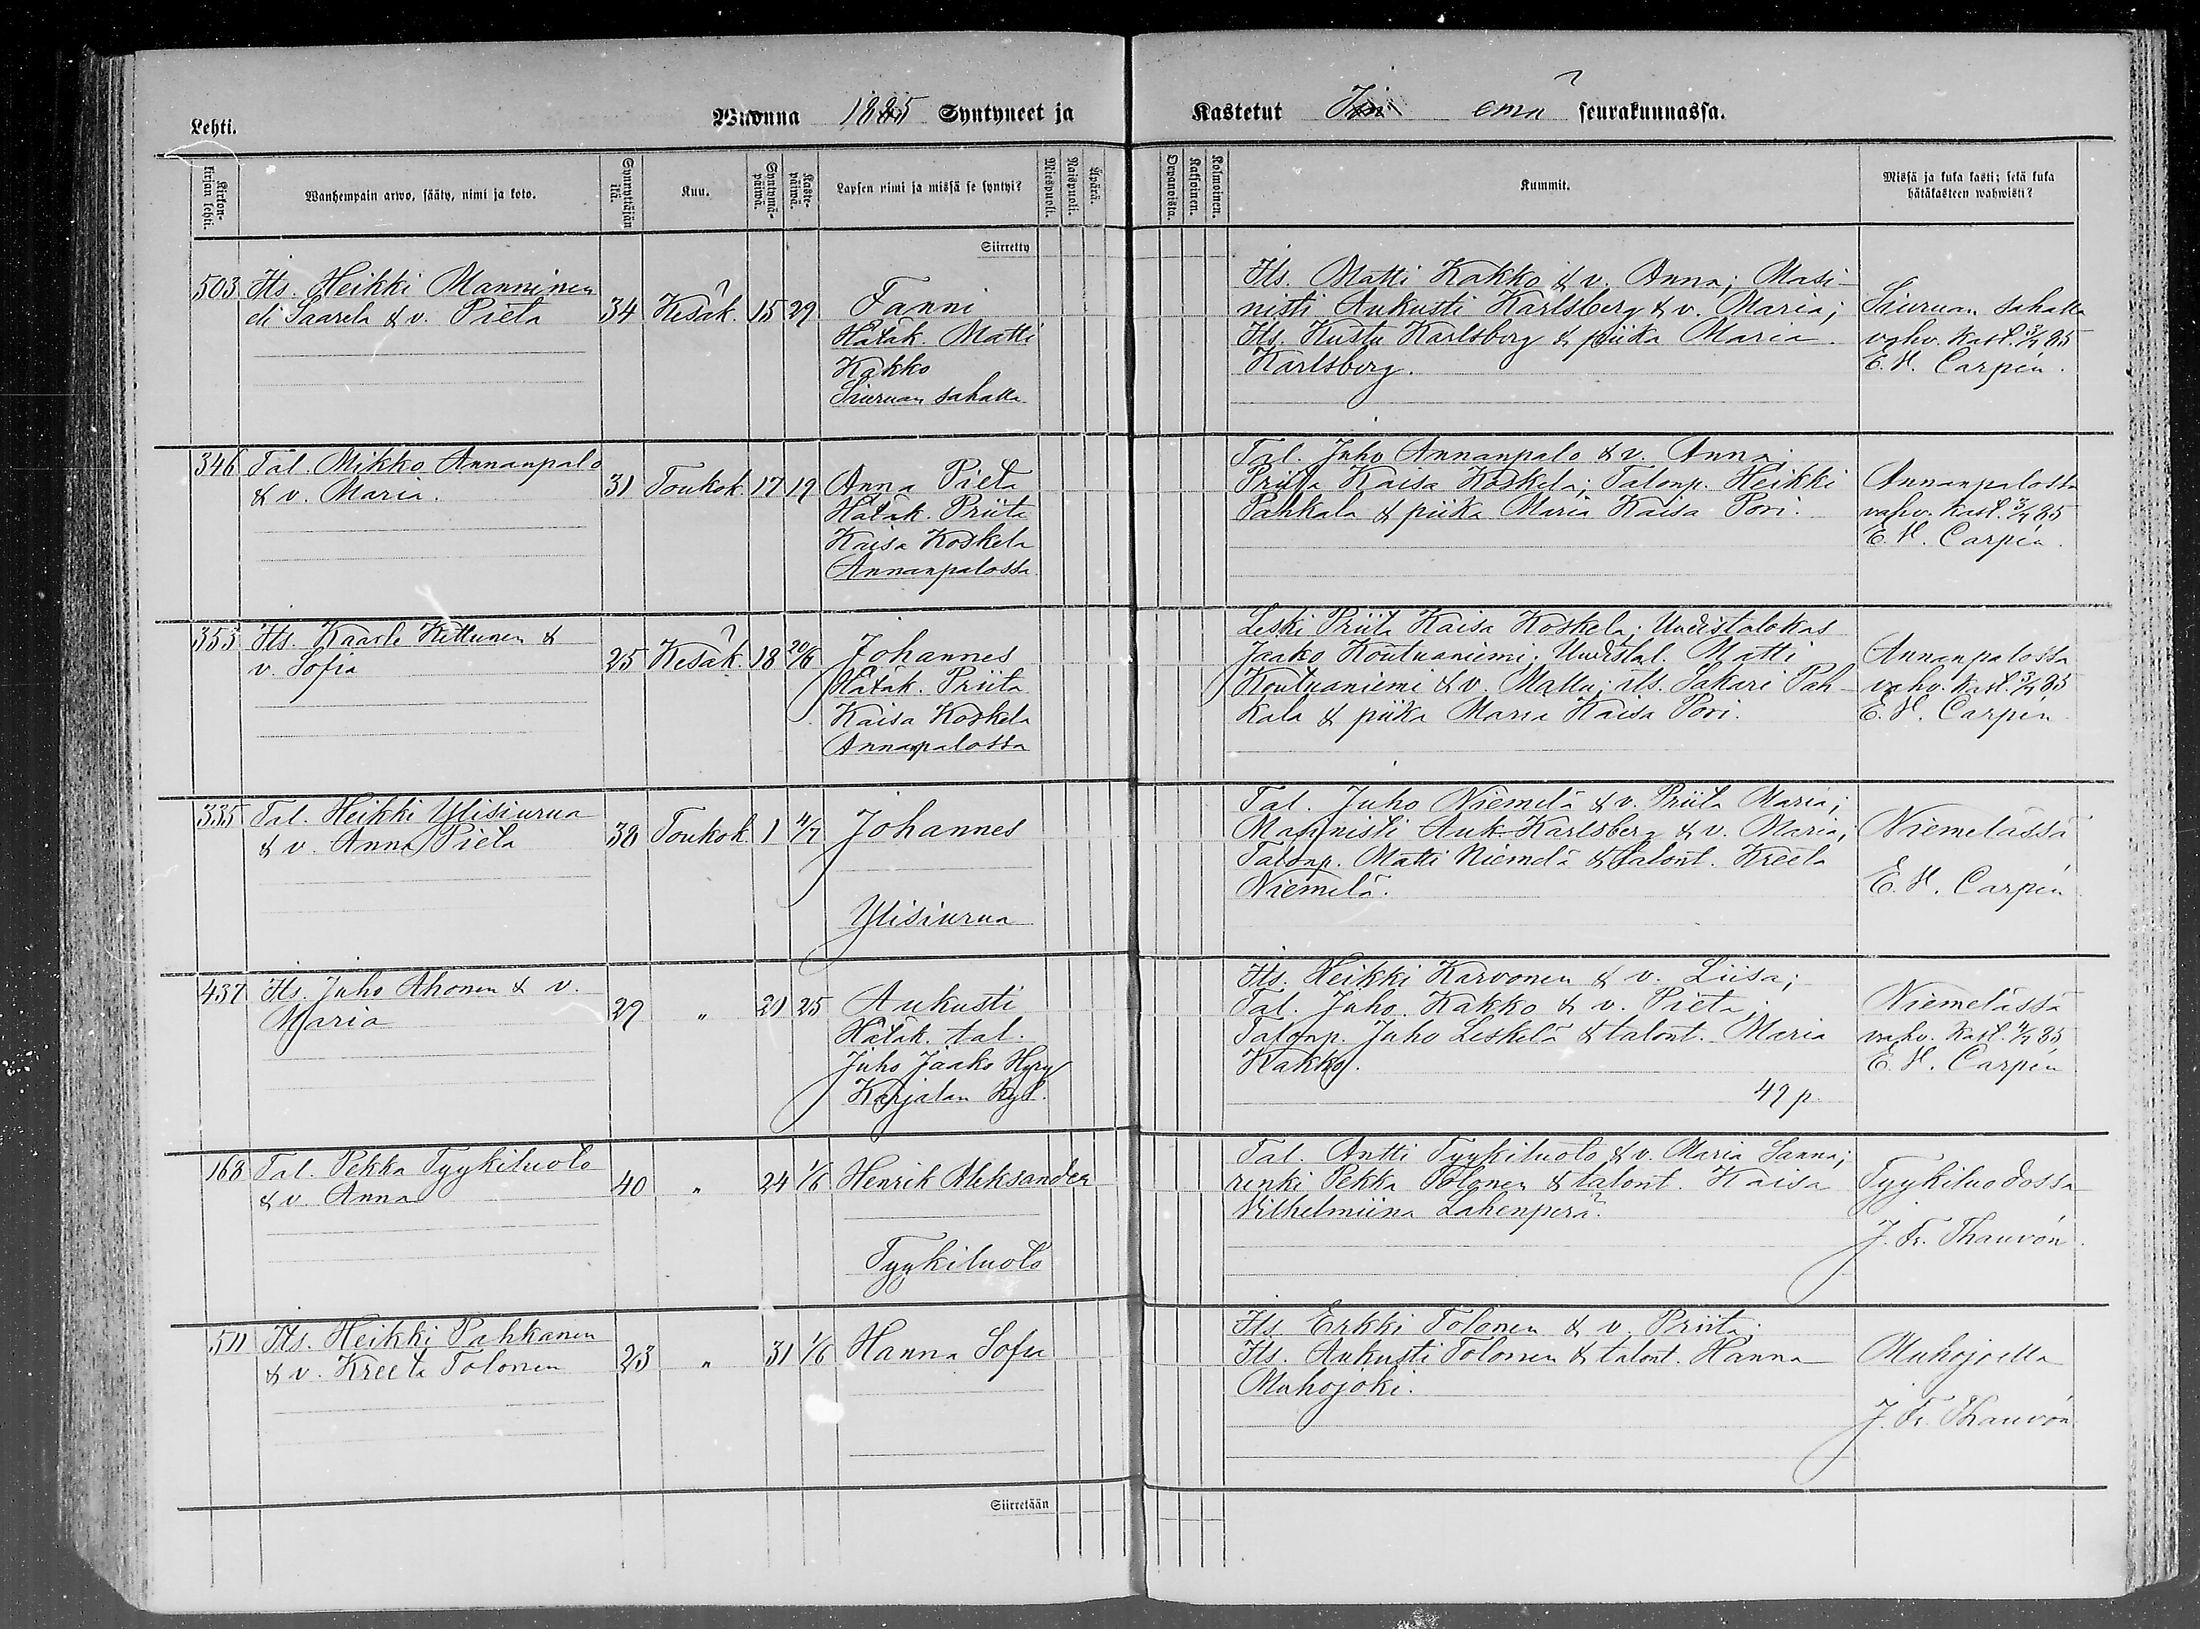 Lehti.
Wuonna 1885 Syntyneet ja
Kastetut Iin emä seurakunnassa.
Kirkon-kirjan lehti.
Wanhempain arwo, sääty, nimi ja koto.
Synnyttäjän ikä.
Kuu.
Syntymä-päiwä.
Kaste-päiwä.
Lapsen nimi ja missä se syntyi?
Miespuoli.
Naispuoli.
Äpärä.
Orpanoista.
Kaksoinen.
Kolmoinen.
Kummit.
Missä ja kuka kasti; sekä kuka
hätäkasteen wahwisti?
Siirretty
503 Its. Heikki Manninen
eli Saarela & v. Pieta 34 Kesäk. 15 29 Fanni
Hätäk. Matti
Kakko
Siuruan sahalla
Its. Matti Kakko & v. Anna; Masi-
nisti Aukusti Karlsberg & v. Maria;
Its. Kustu Karlsberg & piika Maria
Karlsberg.
Siuruan sahalla
vahv. kast. 3/7 85
E. V. Carpén.
346 Tal. Mikko Annanpalo
& v. Maria. 31 Toukok. 17 19 Anna Pieta
Hätäk. Priita
Kaisa Koskela
Annanpalossa
Tal. Juho Annanpalo & v. Anna;
Priita Kaisa Koskela; Talonp. Heikki
Pahkala & piika Maria Kaisa Pori.
Annanpalossa
vahv. kast. 3/7 85
E. V. Carpén.
353 Its. Kaarle Kettunen &
v. Sofia 25 Kesäk. 18 20/6 Johannes
Hätäk. Priita
Kaisa Koskela
Annanpalossa
Leski Priita Kaisa Koskela; Uudistalokas
Jaako Koutuaniemi; Uudistal. Matti
Koutuaniemi & v. Mallu; its. Sakari Pah-
kala & piika Maria Kaisa Pori.
Annanpalossa
vahv. kast. 3/7 85
E. V. Carpén
335 Tal. Heikki Ylisiurua
& v. Anna Pieta 38 Toukok. 1 4/7 Johannes
Ylisiurua
Tal. Juho Niemelä & v. Priita Maria;
Masinisti Auk. Karlsberg & v. Maria;
Talonp. Matti Niemelä & talont. Kreeta
Niemelä.
Niemelässä
E. V. Carpén
437 Its. Juho Ahonen & v.
Maria 29 " 20 25 Aukusti
Hätäk. tal.
Juho Jaako Hyry
Karjalan kyl.
Its. Heikki Karvonen & v. Liisa;
Tal. Juho Kakko & v. Pieta;
Talonp. Juho Leskelä & talont. Maria
Kakko.
49 p.
Niemelässä
vahv. kast. 4/7 85
E. V. Carpén
168 Tal. Pekka Tyykiluoto
& v. Anna 40 " 24 1/6 Henrik Aleksander
Tyykiluoto
Tal. Antti Tyykiluoto & v. Maria Sanna;
renki Pekka Tolonen & talont. Kaisa
Vilhelmiina Lahenperä.
Tyykiluodossa
J. Fr. Thauvón.
511 Its. Heikki Pahkanen
& v. Kreeta Tolonen 23 " 31 1/6 Hanna Sofia
Its. Erkki Tolonen & v. Priita;
Its. Aukusti Tolonen & talont. Hanna
Muhojoki.
Muhojoella
J. Fr. Thauvón
Siirretään